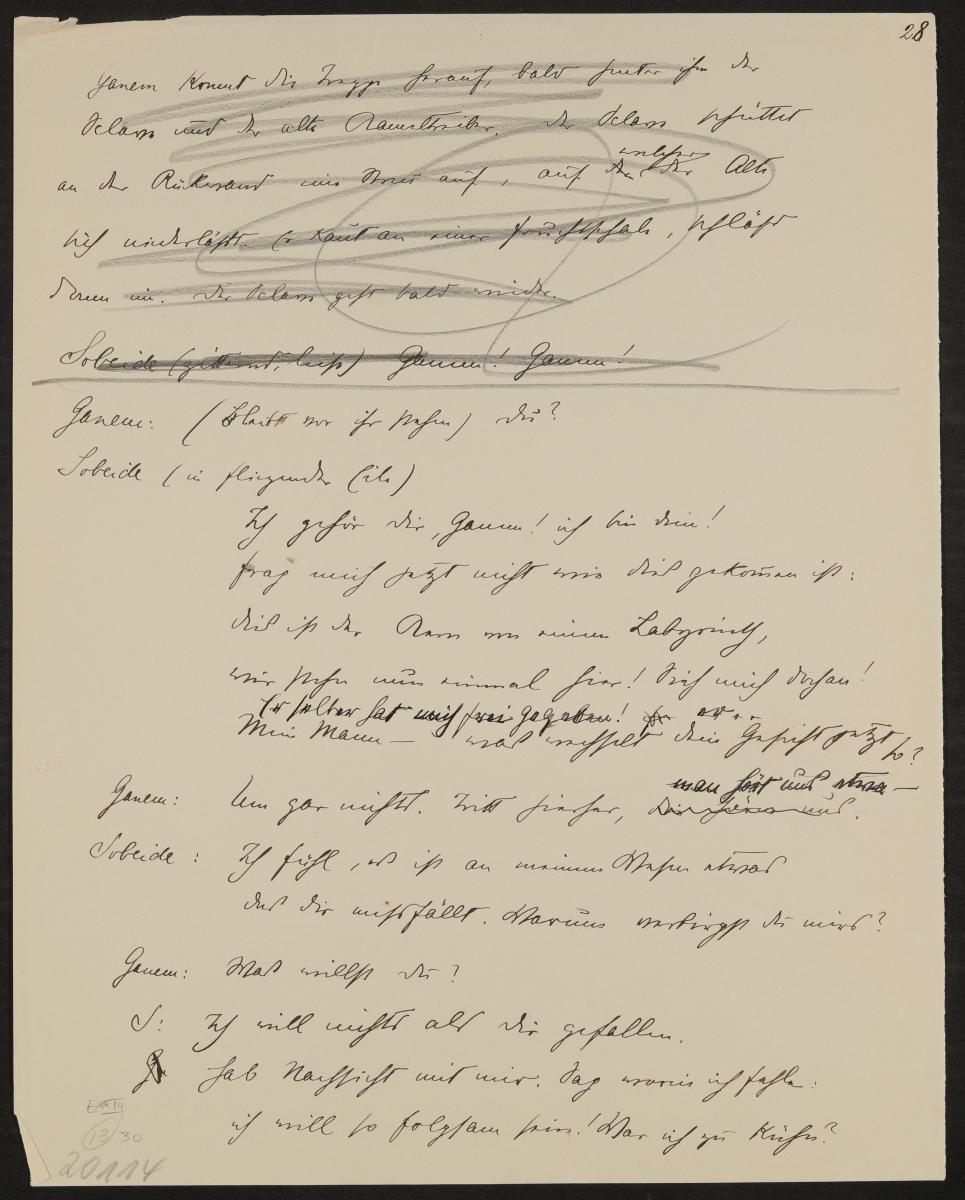 28
Ganem kommt die Treppe herauf, bald hinter ihm der
Sclave und der alte Kameeltreiber. Der Sclave schüttet
an der Rückwand eine Streu auf, auf
welcher
der Alte
sich niederläßt. Er kaut an einer Fruchtschale, schläft
dann ein. Der Sclave geht bald wieder.
Sobeide (zitternd, leise) Ganem! Ganem!
Ganem: (bleibt vor ihr stehen) Du?
Sobeide (in fliegender Eile)
Ich gehör dir, Ganem! ich bin dein!
frag mich jetzt nicht wie dies gekommen ist:
dies ist der Kern von einem Labyrinth,
wir stehn nun einmal hier! Sieh mich doch an!
Er selber hat mich frei gegeben!
Mein Mann — was wechselt dein Gesicht jetzt so?
man hört uns etwa —
Ganem: Um gar nichts. Tritt hierher, die hören uns.
Sobeide: Ich fühl, es ist an meinem Wesen etwas
das dir missfällt. Warum verbirgst du mirs?
Ganem: Was willst du?
S: Ich will nichts als dir gefallen.
Hab Nachsicht mit mir. Sag worin ich fehle:
ich will so folgsam sein! War ich zu kühn?
LXXIII
13 30
20114